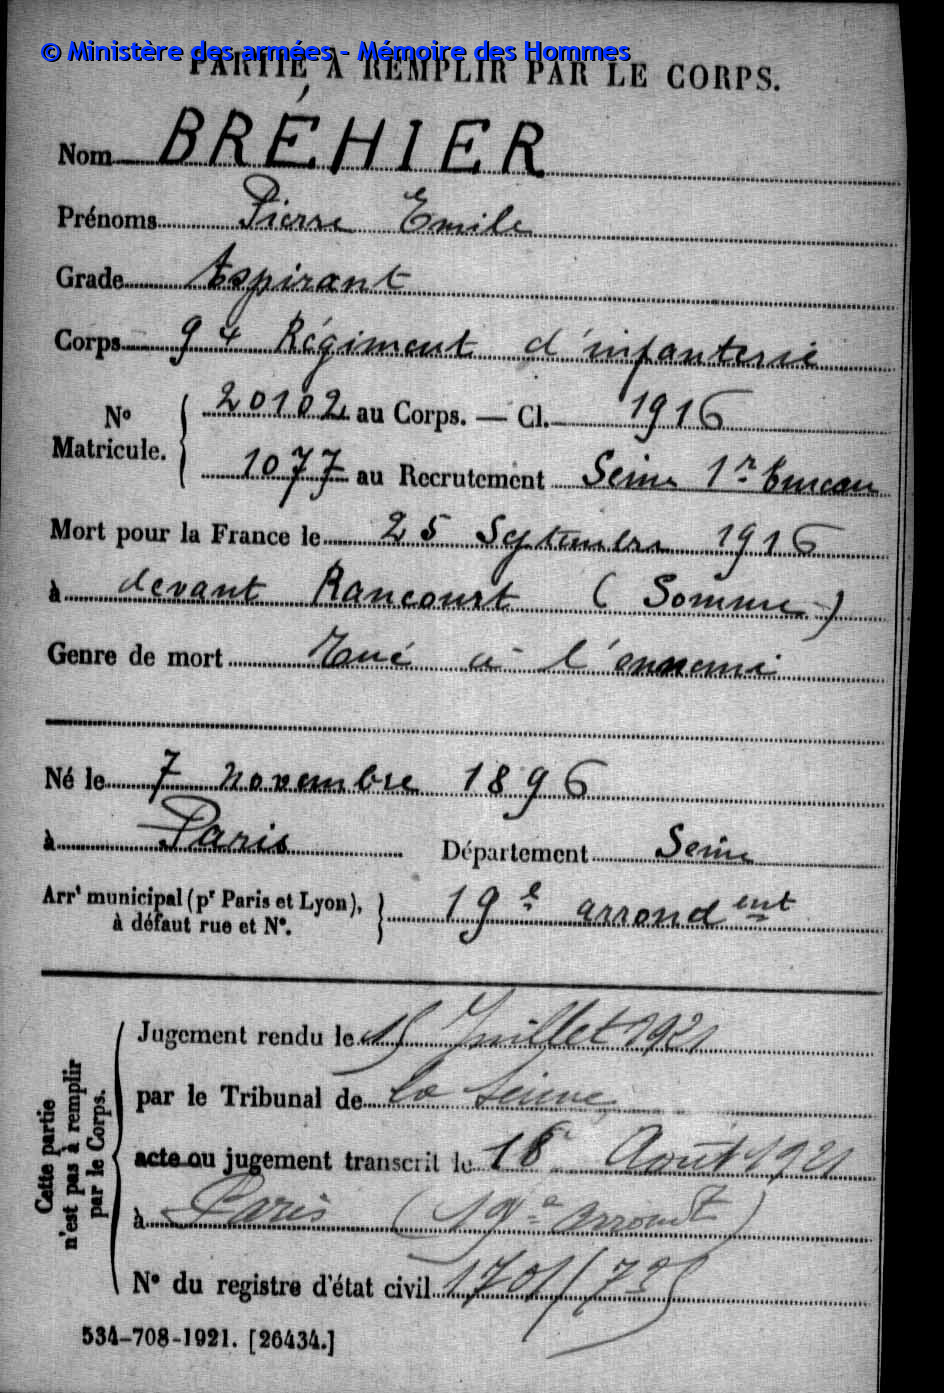 © Ministère des armées - Mémoire des Hommes
PARTIE À REMPLIR PAR LE CORPS.
Nom BRÉHIER
Prénoms Pierre Emile
Grade Aspirant
Corps 94 Régiment d'infanterie
N° Matricule. { 20102 au Corps. — Cl. 1916
1077 au Recrutement Seine 1r Bureau
Mort pour la France le 25 Septembre 1916
à devant Rancourt (Somme)
Genre de mort Tué à l'ennemi
Né le 7 novembre 1896
à Paris Département Seine
Arrt municipal (pr Paris et Lyon), à défaut rue et N°. } 19e arrondent
Cette partie n'est pas à remplir par le Corps.
Jugement rendu le 15 Juillet 1921
par le Tribunal de la Seine
acte ou jugement transcrit le 18 Août 1921
à Paris (19e arrondt)
N° du registre d'état civil 1701/
534-708-1921. [26434.]